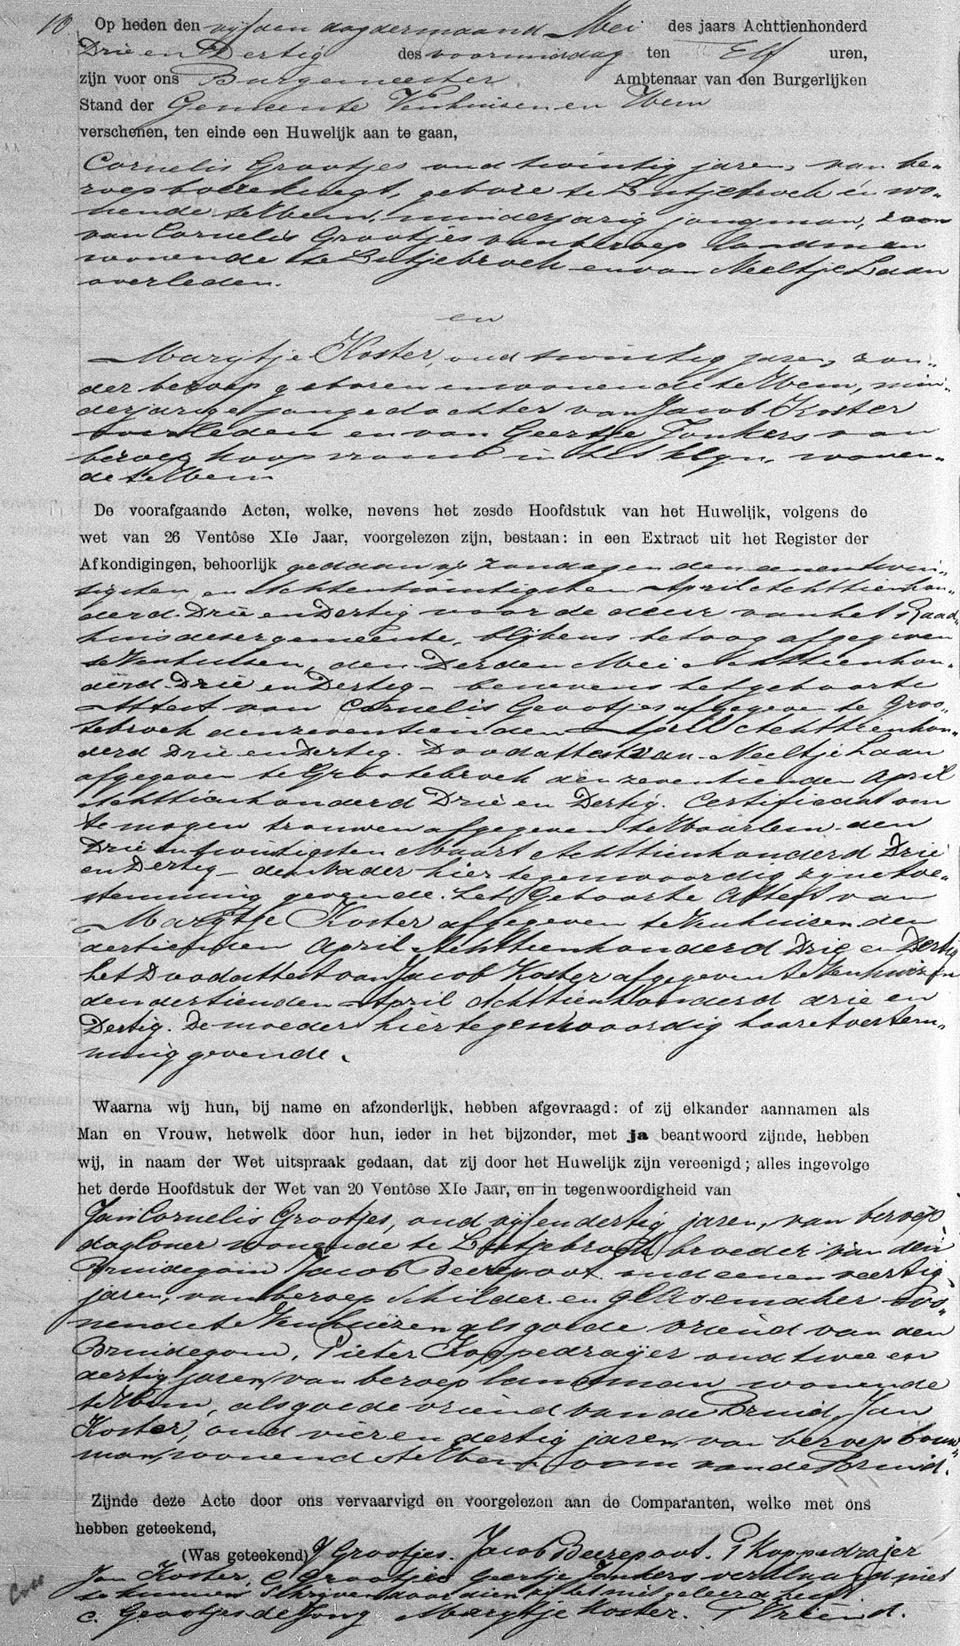 10. Op heden den vijfden dag der maand Mei des jaars Achttienhonderd
Drie en Dertig des voormiddag ten Elf uren,
zijn voor ons Burgemeester Ambtenaar van den Burgerlijken
Stand der Gemeente Venhuisen en Hem
verschenen, ten einde een Huwelijk aan te gaan,
Cornelis Grootjes oud twintig jaren, van be-
roep boereknegt, gebore te Lutjebroek en wo-
nende te Hem, minderjarig jongman, zoon
van Cornelis Grootjes van beroep landman
wonende te Lutjebroek en van Neeltje Laan
overleden.
en
Marijtje Koster, oud twintig jaren, zon-
der beroep geboren en wonende te Hem, min-
derjarige jonge dochter van Jacob Koster
overleden en van Geertje Jonkers van
beroep koopvrouw in het klyn, wonen-
de te Hem
De voorafgaande Acten, welke, nevens het zesde Hoofdstuk van het Huwelijk, volgens de
wet van 26 Ventôse XIe Jaar, voorgelezen zijn, bestaan: in een Extract uit het Register der
Afkondigingen, behoorlijk gedaan op zondagen den eenentwin-
tigsten en Achtentwintigsten April Achttienhon-
derd Drie en Dertig voor de deur van het Raad-
huis deser gemeente, blijkens betoog afgegeven
te Venhuisen, den Derden Mei Achttienhon-
derd Drie en Dertig - benevens het geboorte
Attest van Cornelis Grootjes afgegeven te Groo-
tebroek den zeventienden April Achttienhon-
derd Drie en Dertig. Doodattest van Neeltje Laan
afgegeven te Grootebroek den zeventienden April
Achttienhonderd Drie en Dertig. Certificaat om
te mogen trouwen afgegeven te Haarlem den
Drie en twintigsten Maart Achttienhonderd Drie
en Dertig - de Vader hier tegenwoordig zijne toe-
stemming gevende. Het Geboorte Attest van
Marijtje Koster afgegeven te Venhuisen den
dertienden April Achttienhonderd Drie en Dertig
het Doodattest van Jacob Koster afgegeven te Venhuizen
den dertienden April Achttienhonderd drie en
Dertig. De moeder hier tegenwoordig haare toestem-
ming gevende.
Waarna wij hun, bij name en afzonderlijk, hebben afgevraagd: of zij elkander aannamen als
Man en Vrouw, hetwelk door hun, ieder in het bijzonder, met ja beantwoord zijnde, hebben
wij, in naam der Wet uitspraak gedaan, dat zij door het Huwelijk zijn vereenigd; alles ingevolge
het derde Hoofdstuk der Wet van 20 Ventôse XIe Jaar, en in tegenwoordigheid van
Jan Cornelis Grootjes, oud vijfendertig jaren, van beroep
dagloner wonende te Lutjebroek broeder van den
Bruidegom Jacob Beerepoot oud eenen veertig
jaren, van beroep Schilder en Glasemaker wo-
nende te Venhuizen als goede vriend van den
Bruidegom, Pieter Koppedraijer oud twee en
dertig jaren, van beroep landman wonende
te Hem, als goede vriend van de Bruid, Jan
Koster, oud vier en dertig jaren, van beroep bouw-
man, wonende te Hem oom van de Bruid.
Zijnde deze Acte door ons vervaarvigd en voorgelezen aan de Comparanten, welke met ons
hebben geteekend,
(Was geteekend) J Grootjes. Jacob Beerepoot. P Koppedraijer
Jan Koster, C Grootjes Geertje Jonkers verklaard niet
te kunnen Schrijven door dien zij het niet geleerd heeft
C. Grootjes de Jong Marijtje Koster. P Vriend.